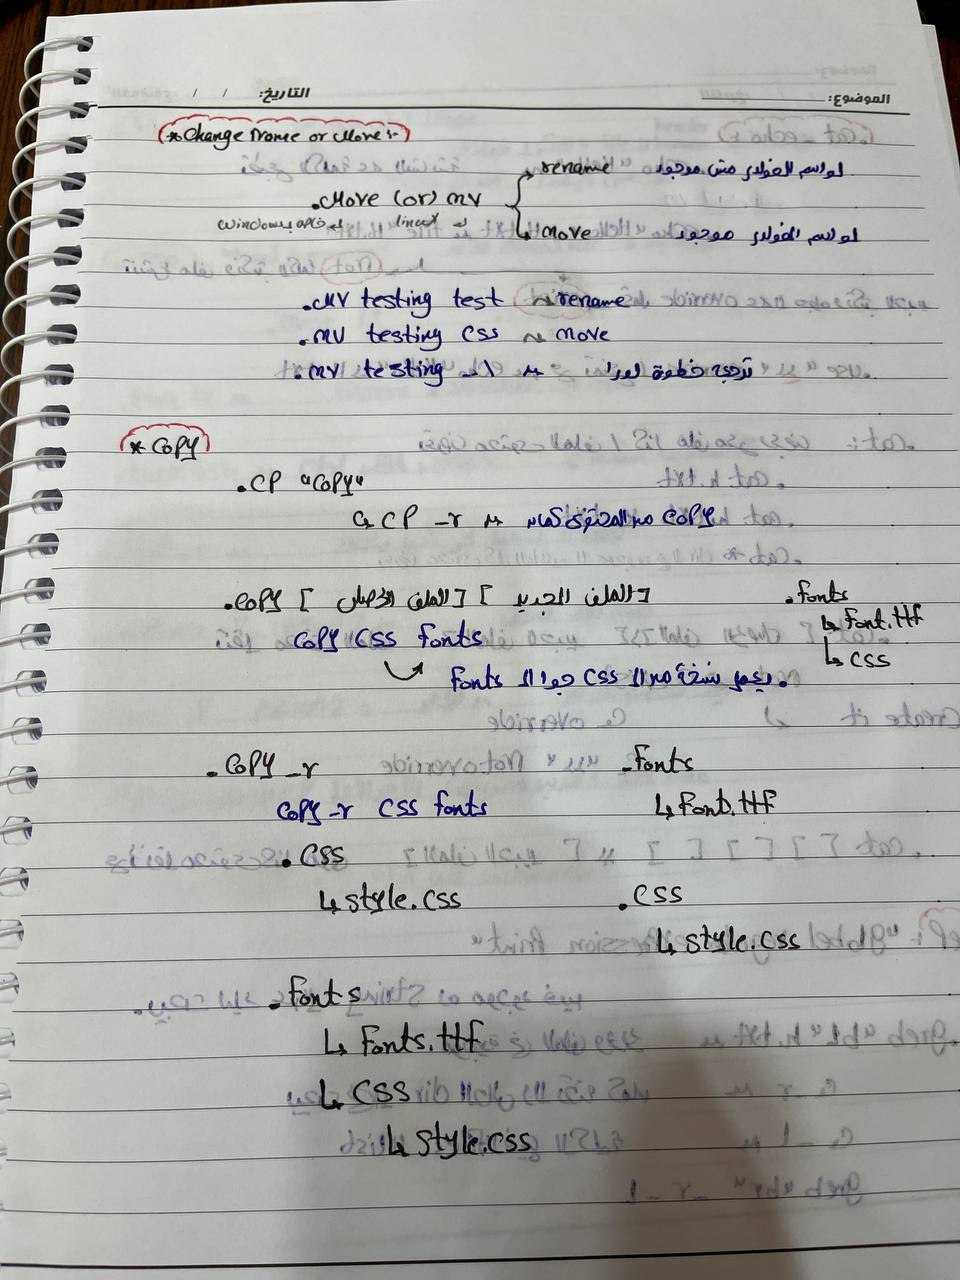 الموضوع: التاريخ: / /
* Change Name or Move :-
rename لو اسم الفولدر مش موجود
. Move (or) mv
windows لـ linux لـ
move لو اسم الفولدر موجود
. MV testing test ~ rename
. mv testing css ~ move
. mv testing .. \ → ترجع خطوة لورا
* Copy
. CP "Copy"
↳ CP -r → copy من المحتوى كمان
. copy [الملف الأصلي] [الملف الجديد]
copy css fonts
يعمل نسخة من الـ css جوا الـ fonts.
. fonts
↳ font.ttf
↳ css
. copy -r
copy -r css fonts
. css
↳ style.css
. fonts
↳ Fonts.ttf
↳ css
↳ style.css
. Fonts
↳ Font.ttf
. css
↳ style.css